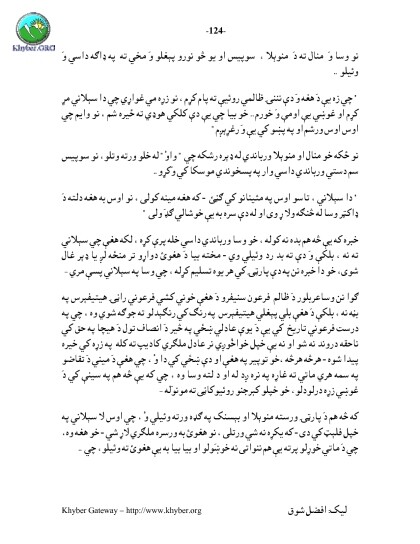 -124-
Khyber.ORG
نو وسا وَ منال ته دَ منوبلا ، سوپيس او يو څو نورو پېغلو وَ مخي ته په ډاګه داسي وَ
وئيلو ..
"چي زه يې دَ هغه وَ دې نننۍ ظالمي روئيې ته پام کړم ، نو زړه مي غواړي چي دا سپلانې مړ
کړم او غوښي يې اومې وَ خورم.. خو بيا چي يې دې کلکي هوډي ته ځير شم ، نو وايم چي
اوس اوس ورشم او په پښو کي يې وَ رغړېږم"
نو ځکه خو منال او منوبلا ورباندي له ډېره رشکه چي "واوْ" له خلو ورته وتلو ، نو سوپيس
سم دستي ورباندي داسي وار په پسخوندي موسکا کي وَکړو ..
"دا سپلانې ، تاسو اوس په مئينانو کي ګڼئ - که هغه مينه کولی ، نو اوس به هغه دلته دَ
ډاکټر وسا له څنګه ولاړ وی او له دې سره به يې خوشالي ګډولی "
خبره که يې څه هم بده نه کوله ، خو وسا ورباندي داسي خله پرې کړه ، لکه هغې چي سپلانې
ته نه ، بلکې وَ دې ته بد رد وئيلي وي - مخته بيا دَ هغوئ دواړو تر منځه لږ يا ډېر غال
شوی، خو دا خبره نن په دې پارټۍ کي هر يوه تسليم کړله ، چي وسا په سپلانې پسې مري --
ګوا نن وسا عربلور دَ ظالم فرعون سنيفرو دَ هغې خوني کښې فرعوني راڼۍ هيتيفيرس په
بڼه نه ، بلکې دَ هغې بلې پېغلي هيتيفيرس په رنګ کي رنګېدلو ته جوګه شوې وه ، چي په
درست فرعوني تاريخ کي يې دَ يوې عادلي ښځي په څېر دَ انصاف تول دَ هيچا په حق کي
ناحقه دروند نه شو او نه يې خپل خواخوږي تر عادل ملګري کاديپ ته کله په زړه کي خيره
پيدا شوه - هرڅه هرڅه .. خو توپير په هغې او دې ښځي کي دا وْ ، چي هغې دَ ميني دَ تقاضو
په سمه هري ماتي ته غاړه په نره ږد له او دَ لته وسا وه ، چي که يې څه هم په سيني کي دَ
غوښي زړه درلودلو .. خو خپلو کبرجنو روئيو کاڼی ته مونوله -
که څه هم دَ پارټۍ ورسته منوبلا او بېسنک په ګډه ورته وئيلي وْ ، چي اوس لا سپلانې په
خپل فلېټ کي دی - که يکړه نه شي ورتلی ، نو هغوئ به ورسره ملګرې لاړ شي - خو هغه وه،
چي دَ ماتي خوړلو پرته يې هم ننواتي نه خوښولو او بيا بيا به يې هغوئ ته وئيلو ، چي --
Khyber Gateway – http://www.khyber.org
ليک: افضل شوق